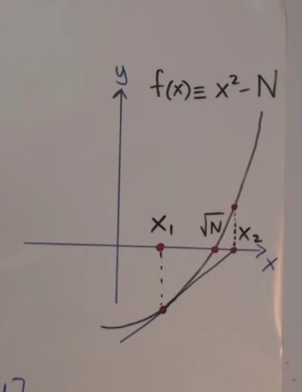 y
f(x)≡ x²-N
x₁
√N
x₂
x